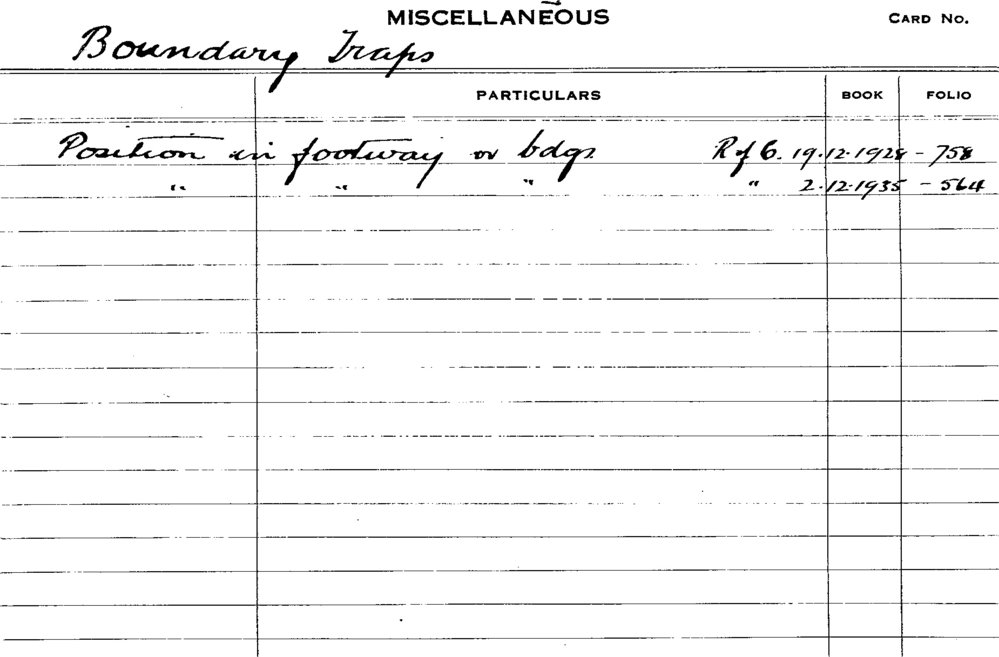 MISCELLANEOUS CARD No.
Boundary Traps
PARTICULARS BOOK FOLIO
Position in footway or bdgs. R of C. 19.12.1928 - 758
" " " " 2.12.1935 - 564